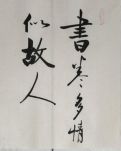 書卷多情
似故人